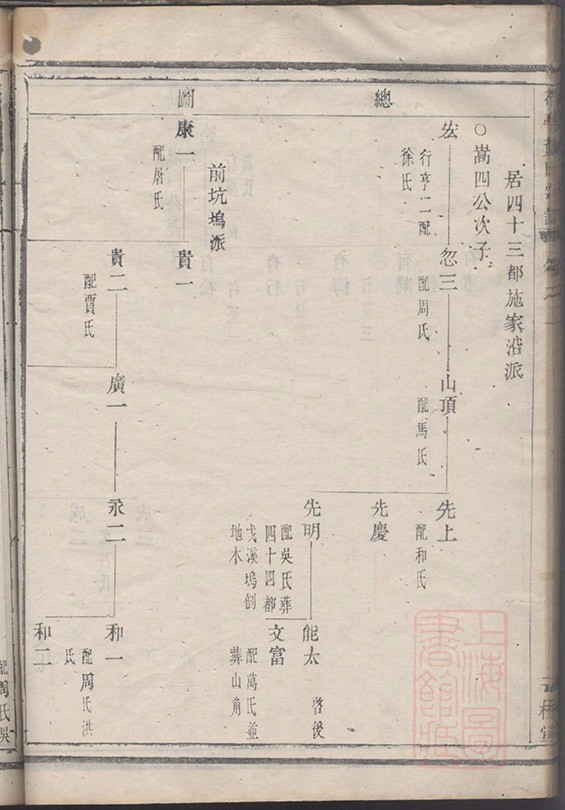 總圖
居四十三都施家沿派
○嵩四公次子
宏
行亨二配
徐氏
忽三
配周氏
山頂
配馬氏
先上
配和氏
先慶
先明
配吳氏葬
四十四都
戈溪塢倒
地木
能太
啓後
文富
配萬氏並
葬山角
前坑塢派
康一
配屠氏
貴一
貴二
配賈氏
廣一
永二
和一
配周氏洪
氏
和二
配周氏吳
上海圖
書館藏